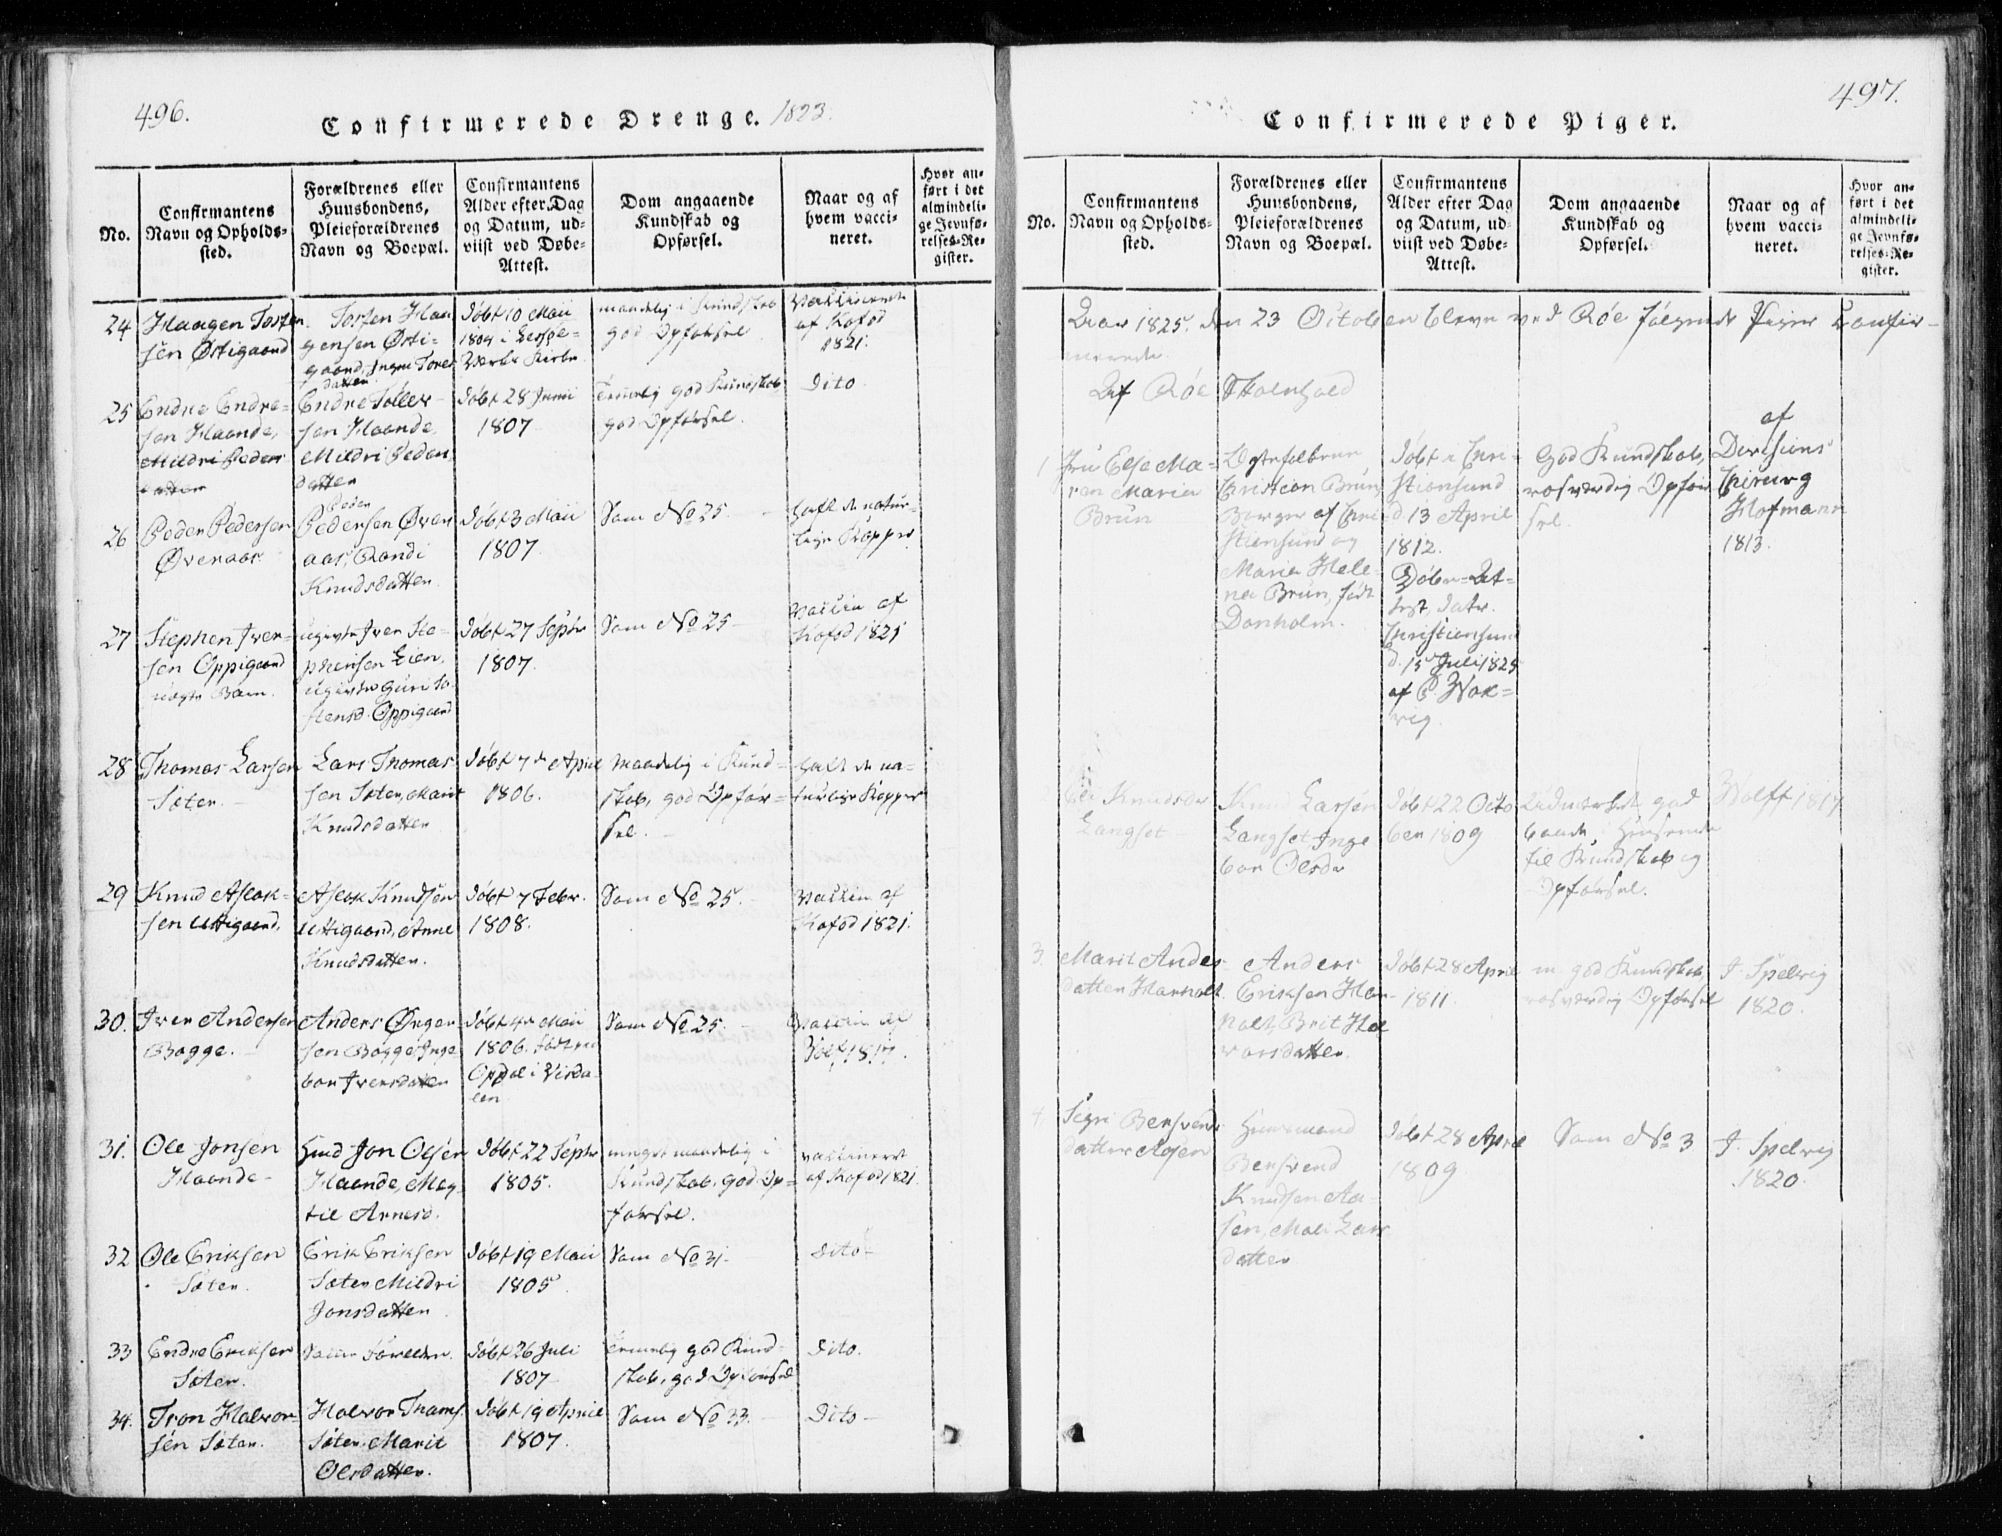 496.
Confirmerede Drenge. 1823.
No.
Confirmantens
Navn og Opholds-
sted.
Forældrenes eller
Huusbondens,
Pleieforældrenes
Navn og Boepæl.
Confirmantens
Alder efter Dag
og Datum, ud-
viist ved Døbe-
Attest.
Dom angaaende
Kundskab og
Opførsel.
Naar og af
hvem vacci-
neret.
Hvor an-
ført i det
almindeli-
ge Jevnfø-
relses-Re-
gister.
24
Haagen Tosten
sen Østigaard
Tosten Haa
gensen Østi-
gaard, Inger Tores
datter
Døbt 10 Maii
1804 i
Værks Kirke
maadelig i Kundskab
god Opførsel
Vaccineret
af Kofod
1821.
25
Endre Endre-
sen Haande,
Mildri Peders
datter
Endre Toller-
sen Haande,
Mildri Peders
datter
Døbt 28 Junii
1807
Temmelig god Kundskab,
god Opførsel.
Dito
26
Peder Pedersen
Øveraas
Peder
Pedersen Øver
aas, Randi
Knudsdatter
Døbt 3 Maii
1807
Som No 25.
havt de natur-
lige Kopper
27
Stephen Iver-
sen Oppigaard
uægte Barn.
ugivte Iver Ste-
phensen Lien,
ugivte Guri To-
stensd. Oppigaard
Døbt 27 Septbr
1807.
Som No 25-
Vaccin af
Kofod 1821
28
Thomas Larsen
Sæter.
Lars Thomas
sen Sæter, Marit
Knudsdatter
Døbt 7de April
1806.
Maadelig i Kund-
skab, god Opfør-
sel.
havt de na-
turlige Kopper
29
Knud Aslak-
sen Uttigaard.
Aslak Knudsen
Uttigaard, Anne
Knudsdatter.
Døbt 7 Febr.
1808.
Som No 25.
Vaccin af
Kofod 1821.
30.
Iver Andersen
Bagge.
Anders
sen Bagge, Inge
bor Iversdatter
Døbt 4de Maii
1806. født paa
Opdal i Visda-
len
Som No 25
Vaccin af
Wolf 1817.
31.
Ole Jonsen
Haande-
Husd Jon Olsen
Haande, Mag-
til Arnesd.
Døbt 22 Septbr
1805.
meget maadelig i
Kundskab, god Op-
førsel.
vaccineret
af Kofod 1821.
32
Ole Eriksen
Sæter.
Erik Eriksen
Sæter, Mildri
Jonsdatter
Døbt 19 Maii
1805
Som No 31
Dito-
33
Endre Eriksen
Sæter.
Samme Forældre.
Døbt 26 Juli
1807
Temmelig god Kund-
skab, god Opførsel
Dito.
34.
Tron Halvor
sen Sæter.
Halvor Trams.
Sæter. Marit
Olsdatter.
Døbt 19 April
1807.
Som No 33.
Dito-
497.
Confirmerede Piger.
No.
Confirmantens
Navn og Opholds-
sted.
Forældrenes eller
Huusbondens,
Pleieforældrenes
Navn og Boepæl.
Confirmantens
Alder efter Dag
og Datum, ud-
viist ved Døbe-
Attest.
Dom angaaende
Kundskab og
Opførsel.
Naar og af
hvem vacci-
neret.
Hvor an-
ført i det
almindeli-
ge Jevnfø-
relses-Re-
gister.
Aar 1825. den 23 Octob bleve ved Røe følgende Piger Confir-
merede.
Af Røe Skolehold
1
Else Ma-
ren Maria
Brun
Christian Brun,
Borger af Chri
stiansund og
Maria Hele-
na Brun, født
Donholm.
Døbt i Chri-
stiansund
d. 13 April
1812.
Døbe-At-
test, dater.
Christiansund
d. 15 Juli 1825
af
God Kundskab,
rosværdig Opfør
sel.
af
Divisions
Chirurg
Hofmann
1813.
Knudsdr
Langset-
Knud Larsen
Langset, Inge
bor Olsdr
Døbt 22 Octo
ber 1809
Udmærket god
baade i Henseende
til Kundskab og
Opførsel.
Wolff 1817
3.
Marit Anders
datter Harholt
Anders
Eriksen Har-
holt, Brit Hal
vorsdatter.
Døbt 28 April
1811.
m. god Kundskab,
rosværdig Opførsel
J. Spelvig
1820.
4.
Segri Bersvend
datter Aasen
Huusmand
Bersvend
Knudsen Aa-
sen, Mali Lars
datter
Døbt 28 April
1809
Som No 3
J. Spelvig
1820.